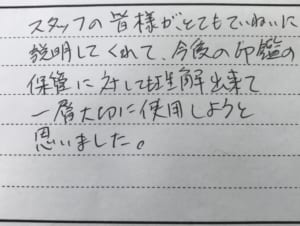 スタッフの皆様がとてもていねいに
説明してくれて、今後の印鑑の
保管に対しても理解出来て
一層大切に使用しようと
思いました。